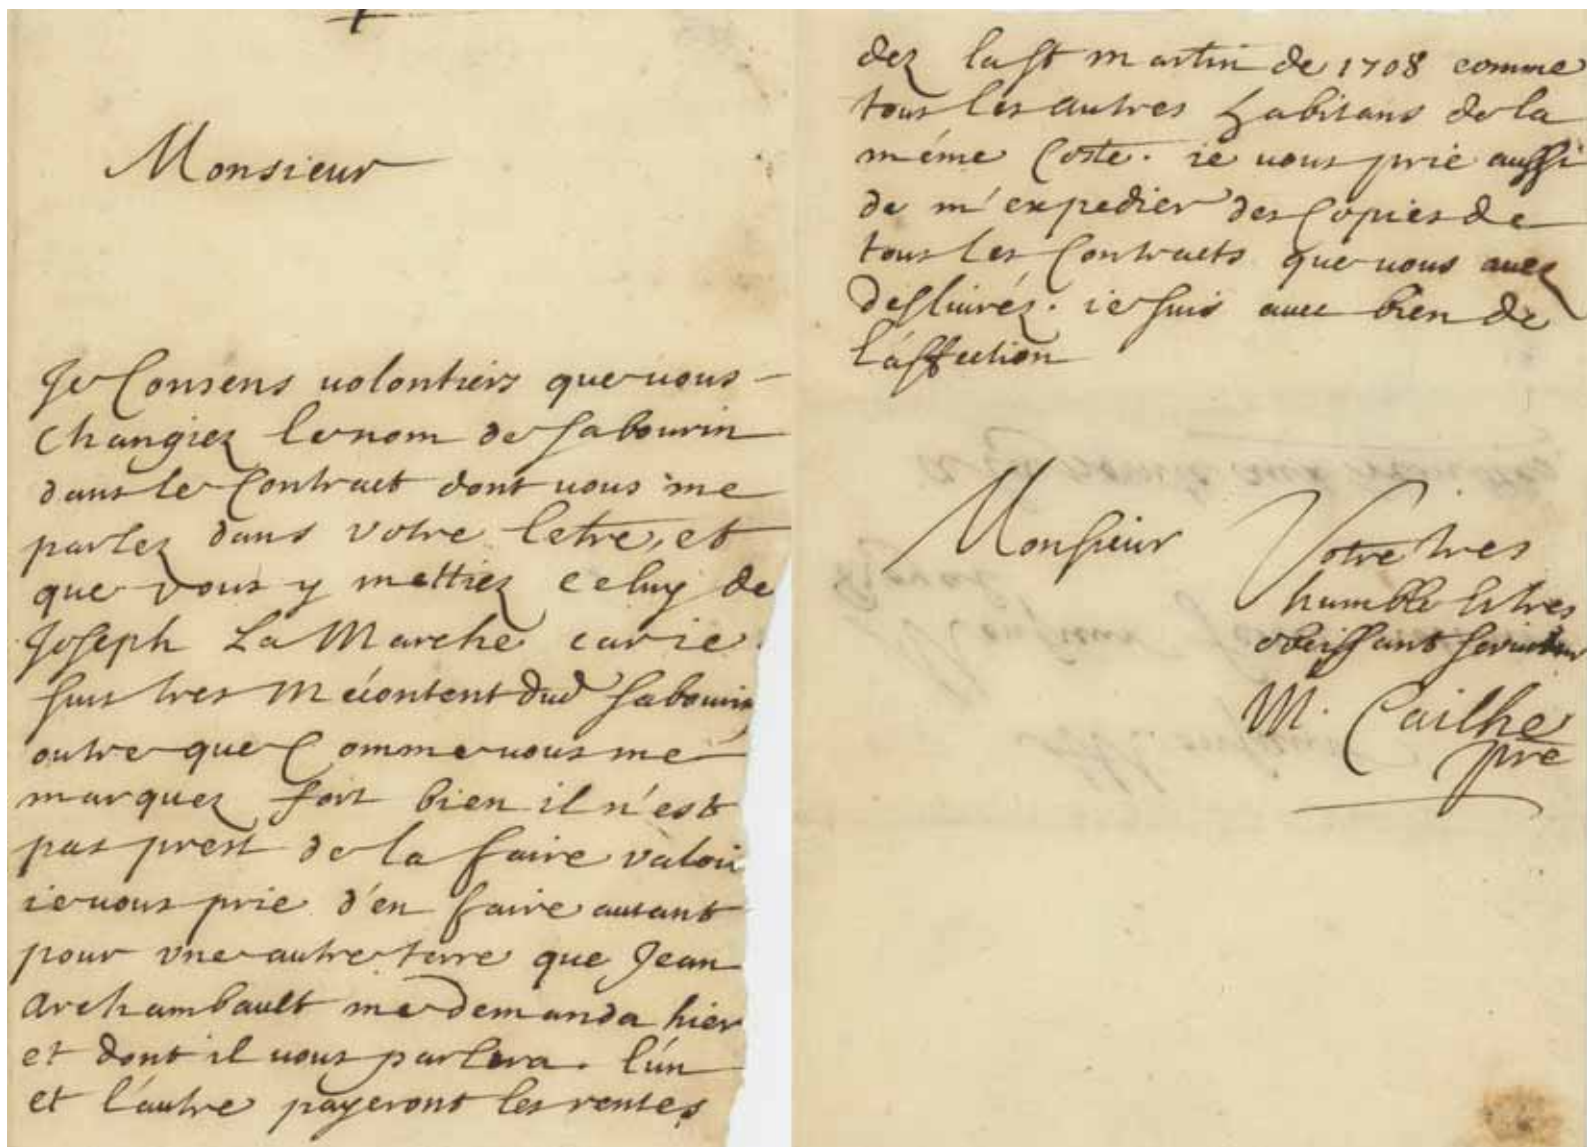 Monsieur
Je Consens uolontiers que uous
Changiez le nom de Sabourin
dans le Contract dont uous me
parlez dans votre letre, et
que vous y mettiez celuy de
Joseph La Marche car ie
suis tres Mécontent dud Sabourin
outre que Comme uous me
marquez fort bien il n'est
pas prest de la faire valoir
ie uous prie d'en faire autant
pour vne autre terre que Jean
Archambault me demanda hier
et dont il uous parlera. l'un
et l'autre payeront les rentes
dez la St martin de 1708 comme
tous les autres habitans de la
méme Coste. ie uous prie aussi
de m'expedier des Copies de
tous les Contracts que uous auez
desliuréz. ie suis auec bien de
l'affection
Monsieur Votre tres
humble et tres
obeissant seruiteur
M. Cailhe
pre